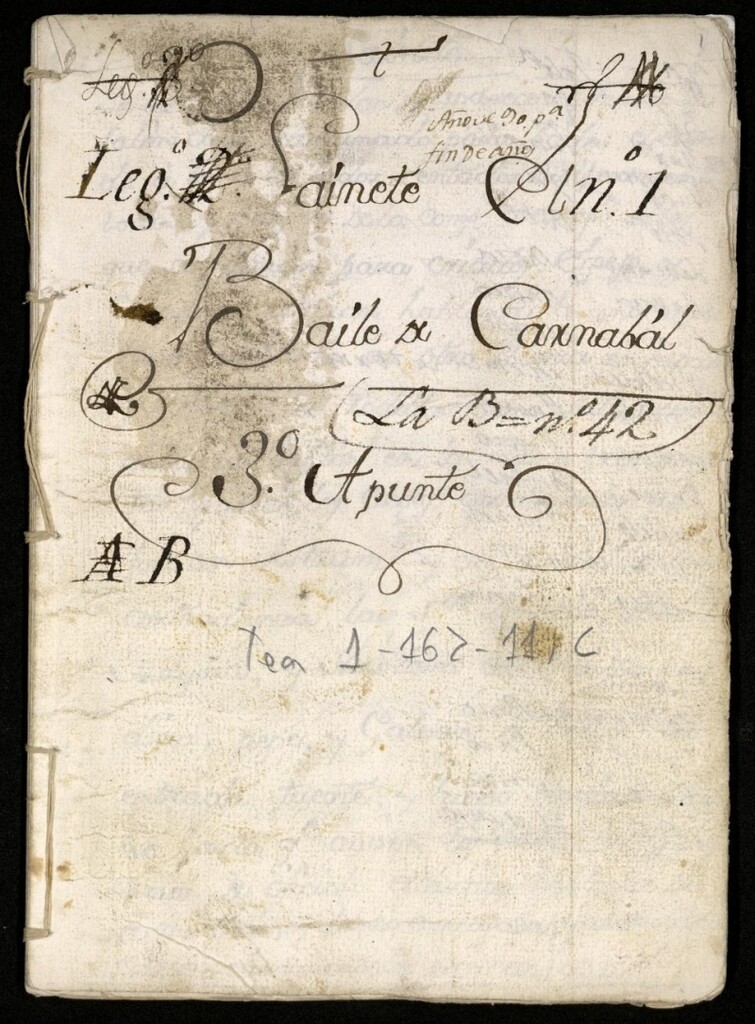 Leg.º 20
Año de 30 pª
fin de año
Leg.º Sainete nº. 1
Baile de Carnabál
La B=nº. 42
3.º Apunte
A B
Tea 1-167-11, C